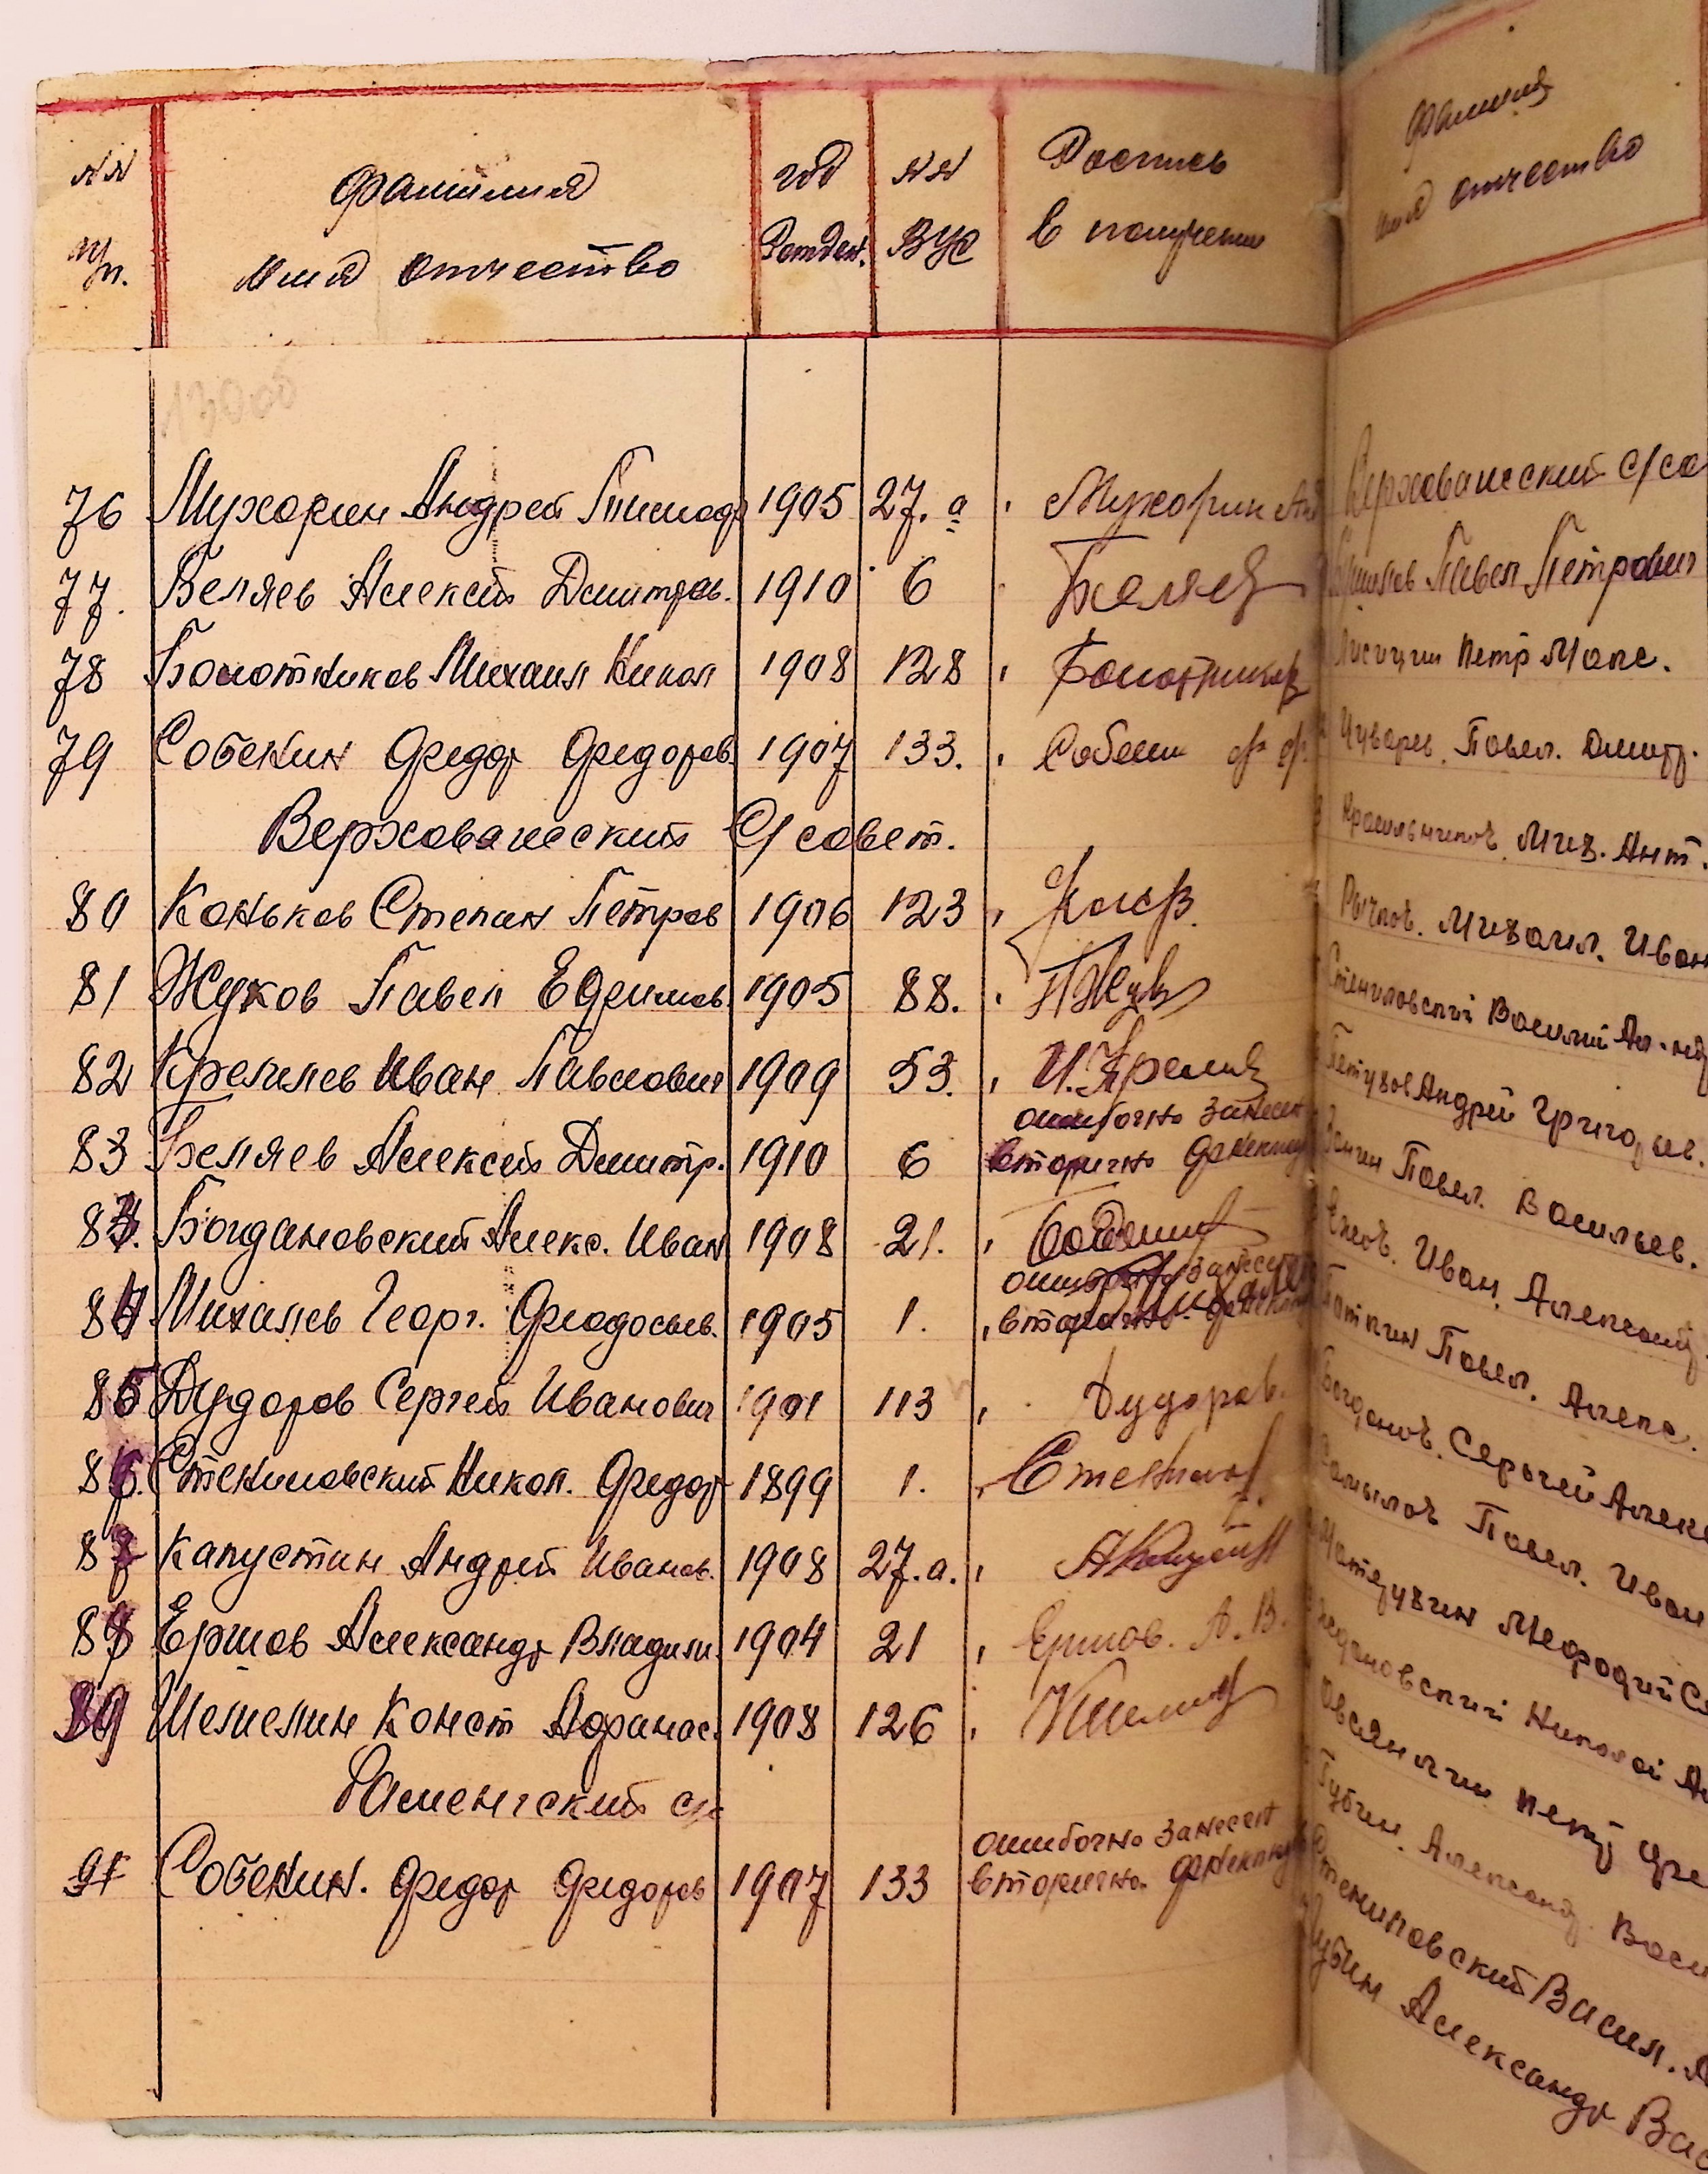 NN фамилия год NN Роспись
п/п. имя отчество Рожден. ВУС в получении
76 Мухорин Андрей Тимоф 1905 27.а Мухорин Ан
77. Беляев Алексей Дмитров. 1910 6 Беляев
78 Болотников Михаил Никол 1908 128 Болотников
79 Собенин Федор Федоров. 1907 133. Собенин ф ф.
Верховажский С/совет.
80 Коньков Степан Петров 1906 123
81 Жуков Павел Ефимов 1905 88. ПЖуков
82 Кремлев Иван Павлович 1909 53. И.Кремлев
83 Беляев Алексей Дмитр. 1910 6 ошибочно занесен
вторично
84. Богдановский Алекс. Иван 1908 21.
84 Михалев Георг. Феодосьев. 1905 1. ошибочно занесен
вторично.
85 Дудоров Сергей Иванович 1901 113 Дудоров.
86. Стениловский Никол. Федор 1899 1.
87 Капустин Андрей Иванов. 1908 27.а.
88 Ершов Александр Владим. 1904 21 Ершов. А.В.
89 Шемелин Конст Афанас. 1908 126
Раменский с/с
91 Собенин. Федор Федоров 1907 133 ошибочно занесен
вторично.
фамилия
имя отчество
Верховажский с/со
Павел Петрович
Лисицин Петр Мопс.
Чуварев. Павел. Дмитр.
Миз. Ант.
Рычков. Михаил. Иван
Стениловский Василий Ал-нд
Петухов Андрей Григорьев.
Павел. Васильев.
Иван. Алексеев
Паткин Павел. Алекс.
Богданов. Сергей Алекс
Самылов Павел. Иван
Мефодий С
Николай А
Овсянкин Петр
Губин. Александ. Васи
Стениловский Васил. А
Губин Александр Вас